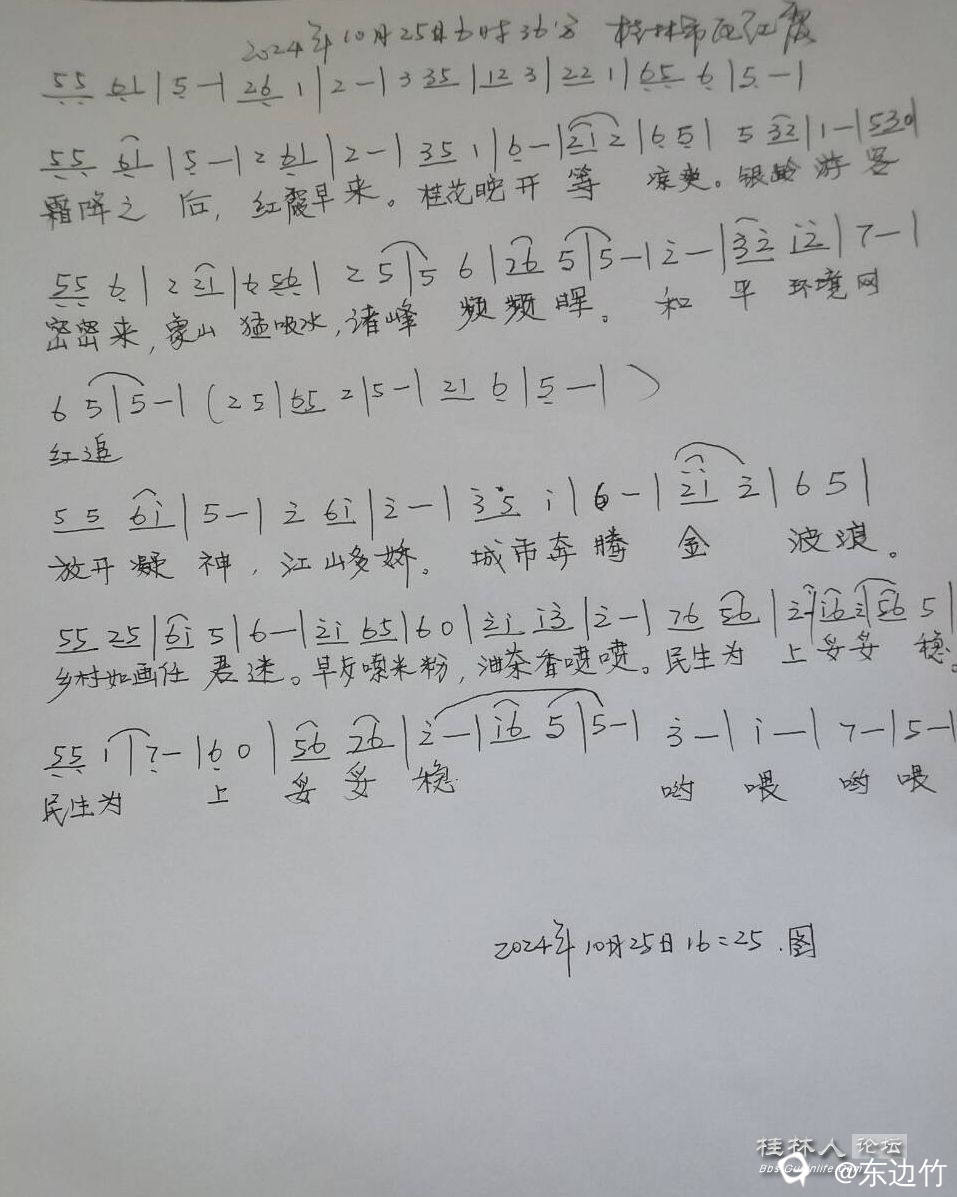 2024年10月25日6时36分 桂林市区红霞
55 61 | 5 - | 26 1 | 2 - | 3 35 | 12 3 | 22 1 | 65 6 | 5 - |
55 61 | 5 - | 2 61 | 2 - | 35 1 | 6 - | 21 2 | 6 5 | 5 32 | 1 - | 530 |
霜降之 后, 红霞早来。桂花晚开 等 凉爽。银龄 游 客
55 6 | 2 21 | 6 56 | 2 5 | 5 6 | 26 5 | 5 - | 2 - | 32 12 | 7 - |
密密来, 象山 猛吸水, 诸峰 频 频 晖。 和 平 环境网
6 5 | 5 - | (2 5 | 65 2 | 5 - | 21 6 | 5 - | )
红追
5 5 61 | 5 - | 2 61 | 2 - | 35 1 | 6 - | 21 2 | 6 5 |
放开凝 神, 江山多娇。 城市奔 腾 金 波浪。
55 25 | 61 5 | 6 - | 21 65 | 6 0 | 21 13 | 2 - | 76 56 | 2 - | 16 2 | 56 5 |
乡村如画任 君 迷。早攵嗦米粉, 油茶香喷喷。民生为 上 妥妥 稳。
55 1 | 7 - | 6 0 | 56 26 | 2 - | 16 5 | 5 - | 3 - | 1 - | 7 - | 5 - |
民生为 上 妥 妥 稳 哟 喂 哟 喂
2024年10月25日16=25.图
桂林人论坛
@东边竹